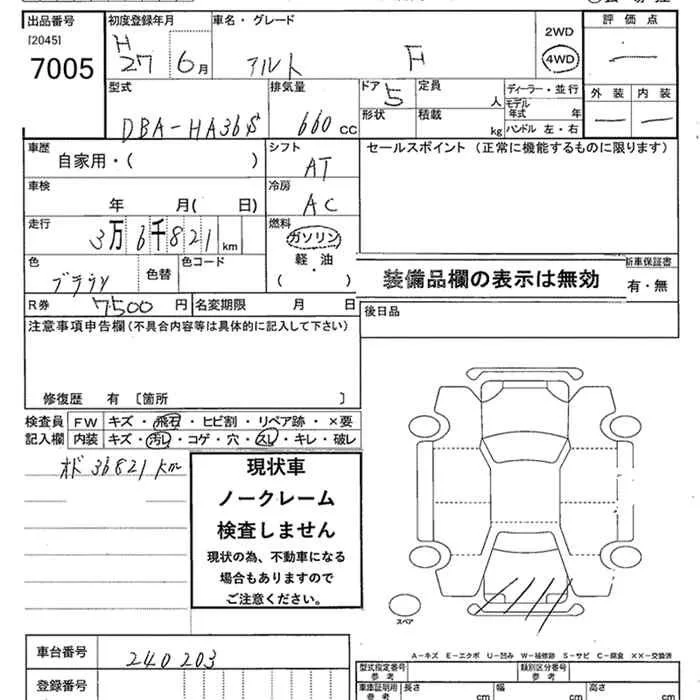 出品番号 初度登録年月 車名・グレード 2WD 評価点
[2045] H
7005 27 6月 アルト F 4WD
型式 排気量 ドア 5 定員 人 ディーラー・並行 外装 内装
モデル年式 年
DBA-HA36S 660 CC 形状 積載 kg ハンドル 左・右
車歴 シフト セールスポイント (正常に機能するものに限ります)
自家用・( ) AT
車検 冷房
年 月( 日) AC
走行 燃料
3万6千821km ガソリン
軽油
( )
色 色替 色コード 装備品欄の表示は無効 新車保証書
有・無
R券 7,500 円 名変期限 月 日 後日品
注意事項申告欄(不具合内容等は具体的に記入して下さい)
修復歴 有 〔箇所 〕
検査員 FW キズ・飛石・ヒビ割・リペア跡・×要
記入欄 内装 キズ・汚レ・コゲ・穴・スレ・キレ・破レ
オド 36821 km
現状車
ノークレーム
検査しません
現状の為、不動車になる
場合もありますので
ご注意ください。
スペア
A－キズ E－エクボ U－凹み W－補修跡 S－サビ C－腐食 XX－交換済
車台番号 240203 型式指定番号 参考 類別区分番号 参考
登録番号 車庫証明用 参考 長さ cm 幅 cm 高さ cm